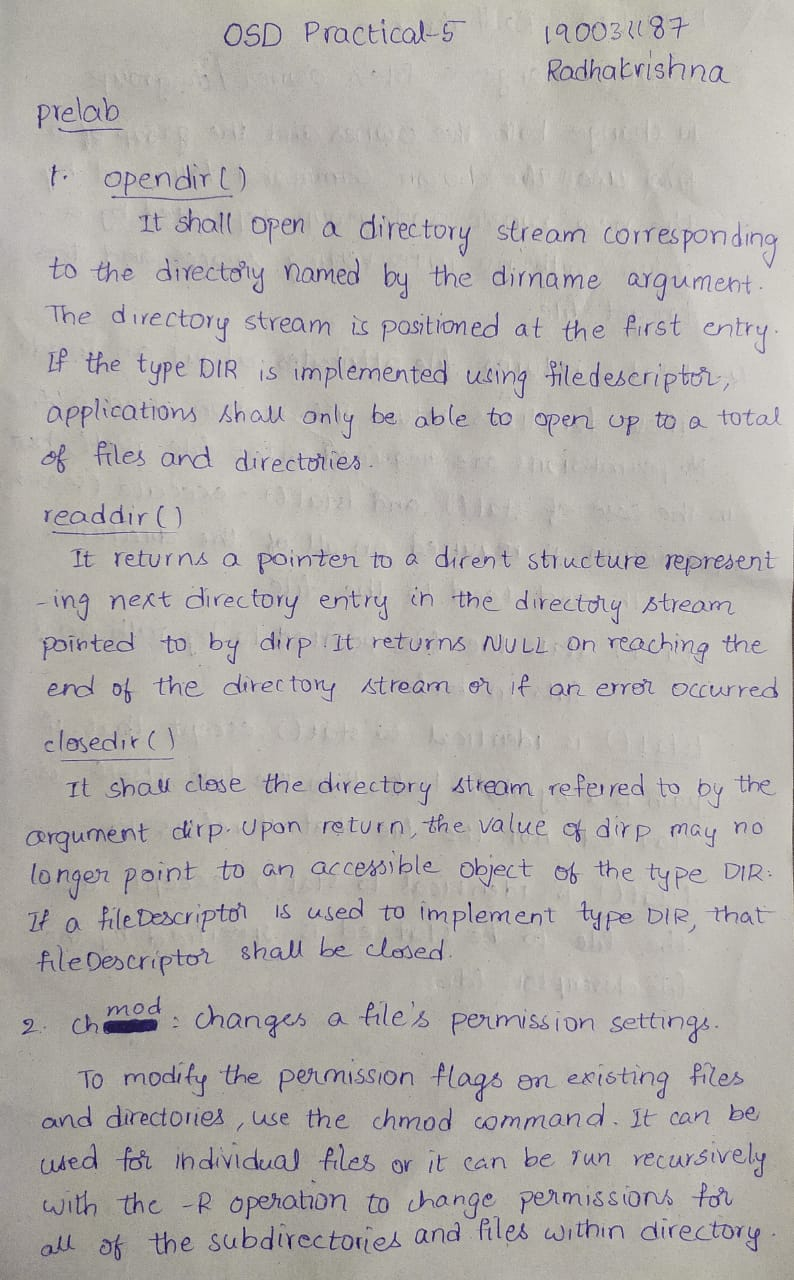 OSD Practical-5 190031187
Radhakrishna
prelab
1. opendir()
It shall open a directory stream corresponding
to the directory named by the dirname argument.
The directory stream is positioned at the first entry.
If the type DIR is implemented using filedescriptor,
applications shall only be able to open up to a total
of files and directories.
readdir()
It returns a pointer to a dirent structure represent
-ing next directory entry in the directory stream
pointed to by dirp. It returns NULL on reaching the
end of the directory stream or if an error occurred
closedir()
It shall close the directory stream referred to by the
argument dirp. Upon return, the value of dirp may no
longer point to an accessible object of the type DIR.
If a fileDescriptor is used to implement type DIR, that
fileDescriptor shall be closed.
2. chmod : changes a file's permission settings.
To modify the permission flags on existing files
and directories, use the chmod command. It can be
used for individual files or it can be run recursively
with the -R operation to change permissions for
all of the subdirectories and files within directory.